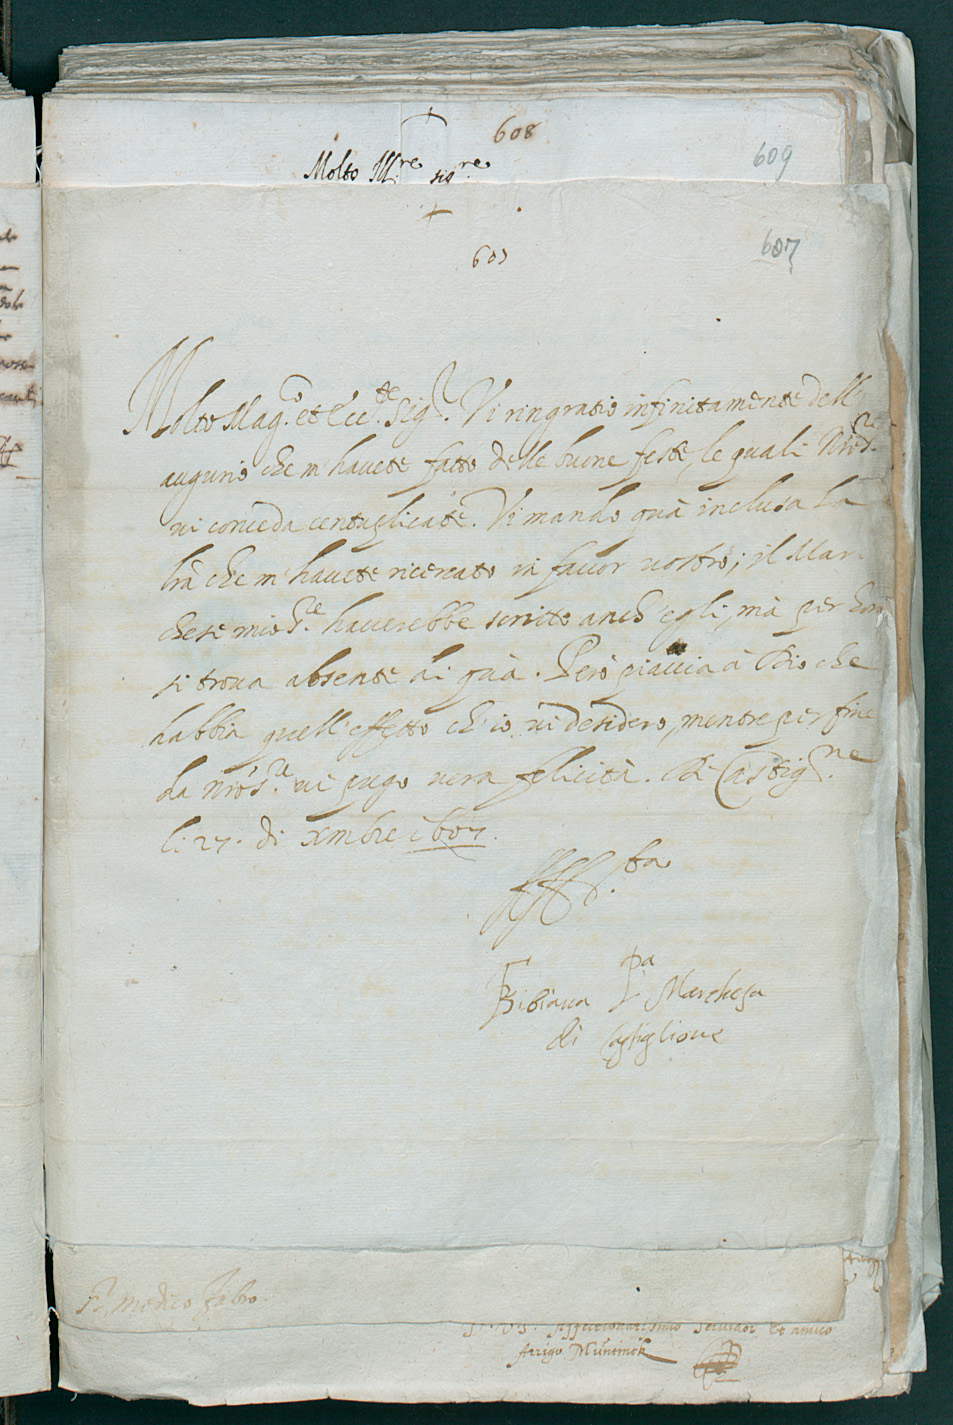 608
609
Molto Ill.re sig.re
605
607
Molto Mag.co et Ecc.te Sig.r Vi ringratio infinitamente dell'
augurio che m'havete fatto delle buone feste, le quali N'ro S.re
vi conceda centuplicate. Vi mando quà inclusa la
l'ra che m'havete ricercato in favor vostro; il Mar-
chese mio S.re haverebbe scritto anch'egli, mà per hora
si trova absente di quà. Però piaccia à Dio che
habbia quell'effetto ch'io vi desidero, mentre per fine
da N'ro S.re vi prego vera felicità. Di Castig.ne
li 27. di Xmbre 1607.
Bibiana P.pa Marchesa
di Castiglione
S.r Medico Fabro.
D. V. S. Affectionatissimo servidor et amico
Arrigo Muntinck